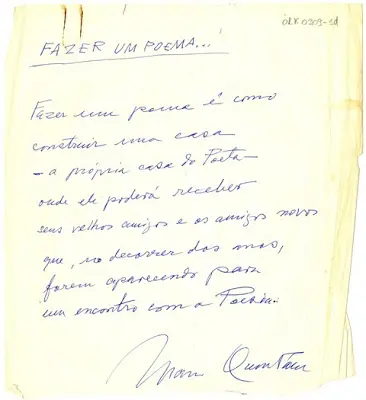 OLK 0209-1d
FAZER UM POEMA...
Fazer um poema é como
construir uma casa
— a própria casa do Poeta —
onde ele poderá receber
seus velhos amigos e os amigos novos
que, no decorrer dos anos,
forem aparecendo para
um encontro com a Poesia.
Mario Quintana